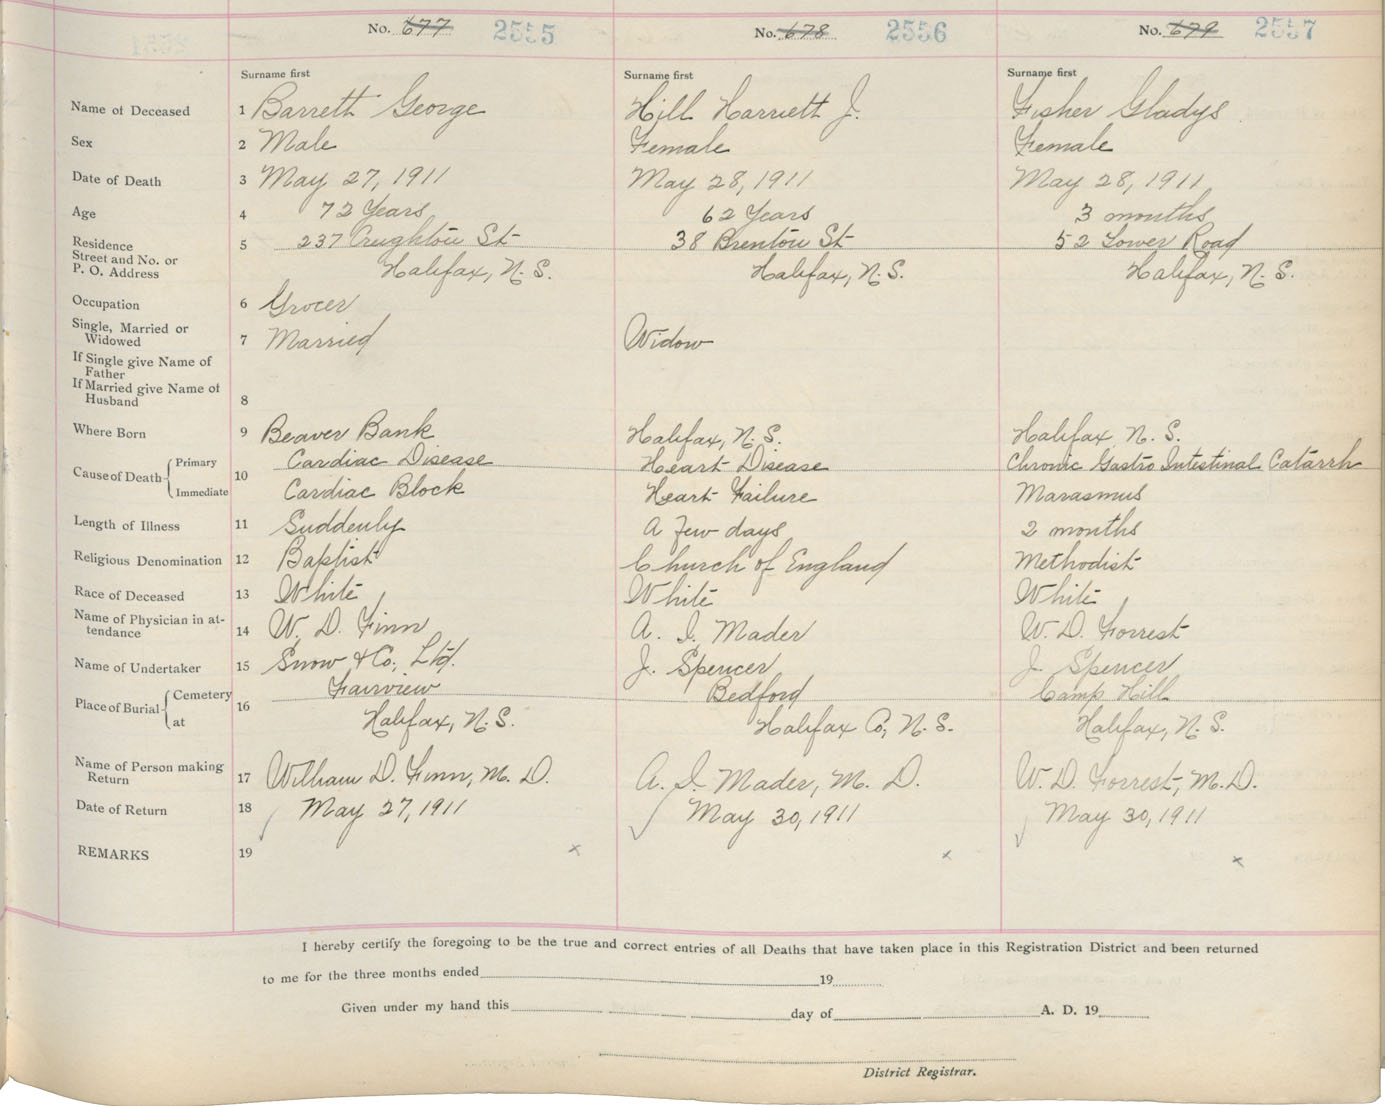 No. 677 2555 No. 678 2556 No. 679 2557
Surname first Surname first Surname first
Name of Deceased 1 Barrett George Hill Harriett J. Fisher Gladys
Sex 2 Male Female Female
Date of Death 3 May 27, 1911 May 28, 1911 May 28, 1911
Age 4 72 Years 62 Years 3 months
Residence 5 237 Creighton St 38 Brenton St 52 Lower Road
Street and No. or
P. O. Address Halifax, N. S. Halifax, N. S. Halifax, N. S.
Occupation 6 Grocer
Single, Married or
Widowed 7 Married Widow
If Single give Name of
Father
If Married give Name of
Husband 8
Where Born 9 Beaver Bank Halifax, N. S. Halifax N. S.
Cause of Death 10 Primary Cardiac Disease Heart Disease Chronic Gastro Intestinal Catarrh
Immediate Cardiac Block Heart Failure Marasmus
Length of Illness 11 Suddenly A few days 2 months
Religious Denomination 12 Baptist Church of England Methodist
Race of Deceased 13 White White White
Name of Physician in at-
tendance 14 W. D. Finn A. I. Mader W. D. Forrest
Name of Undertaker 15 Snow & Co., Ltd. J. Spencer J. Spencer
Place of Burial 16 Cemetery Fairview Bedford Camp Hill
at Halifax, N. S. Halifax Co, N. S. Halifax, N. S.
Name of Person making
Return 17 William D. Finn, M. D. A. I. Mader, M. D. W. D. Forrest, M. D.
Date of Return 18 May 27, 1911 May 30, 1911 May 30, 1911
REMARKS 19 x x x
I hereby certify the foregoing to be the true and correct entries of all Deaths that have taken place in this Registration District and been returned
to me for the three months ended 19
Given under my hand this day of A. D. 19
District Registrar.